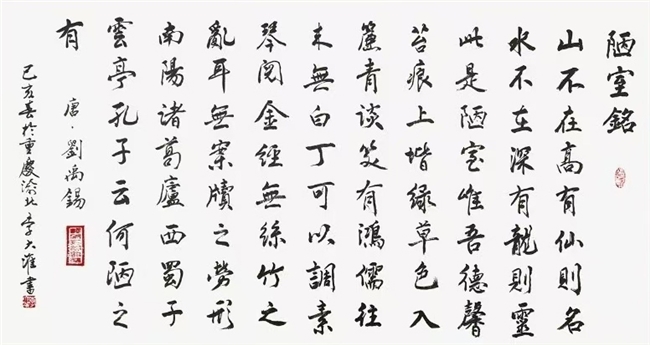 陋室銘
山不在高有仙則名
水不在深有龍則靈
此是陋室惟吾德馨
苔痕上堦綠草色入
簾青談笑有鴻儒往
来無白丁可以調素
琴閱金經無絲竹之
亂耳無案牘之勞形
南陽諸葛廬西蜀子
雲亭孔子云何陋之
有
唐·劉禹錫
己亥春於重慶渝北李大淮書